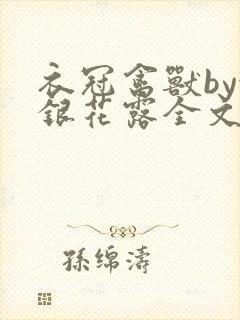 衣冠禽獸by
銀花露全文
孫綿濤